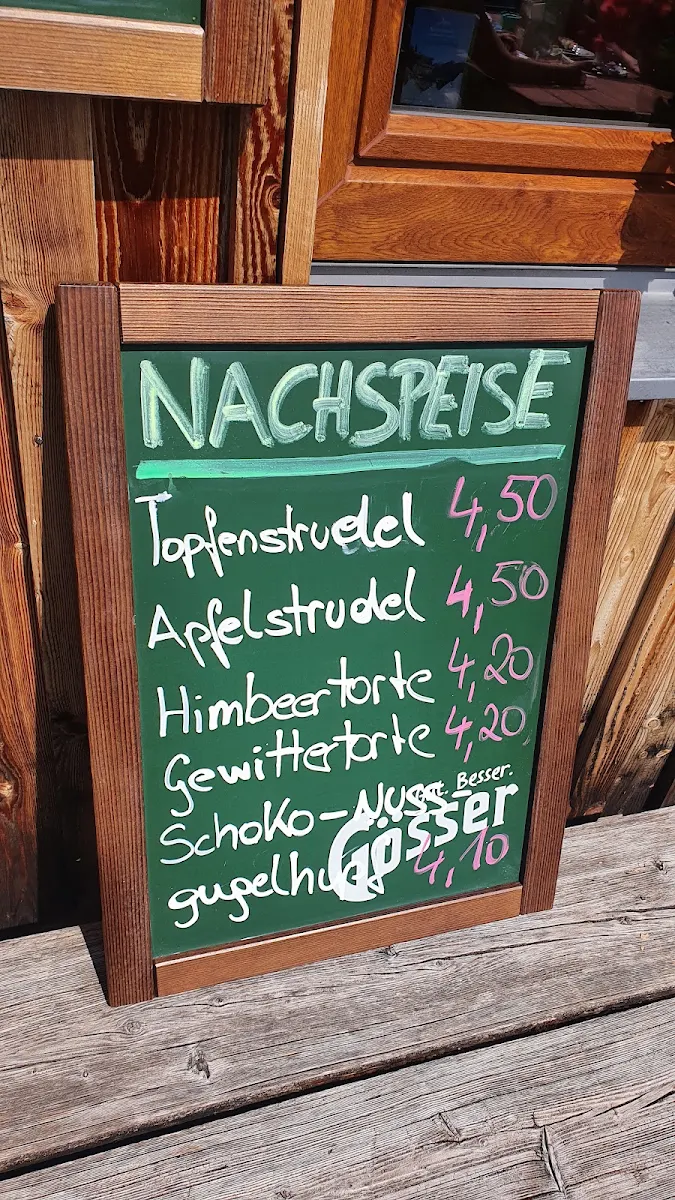 NACHSPEISE
Topfenstrudel 4,50
Apfelstrudel 4,50
Himbeertorte 4,20
Gewittertorte 4,20
Schoko-Nuss-
gugelhupf 4,10
Gut. Besser.
Gösser